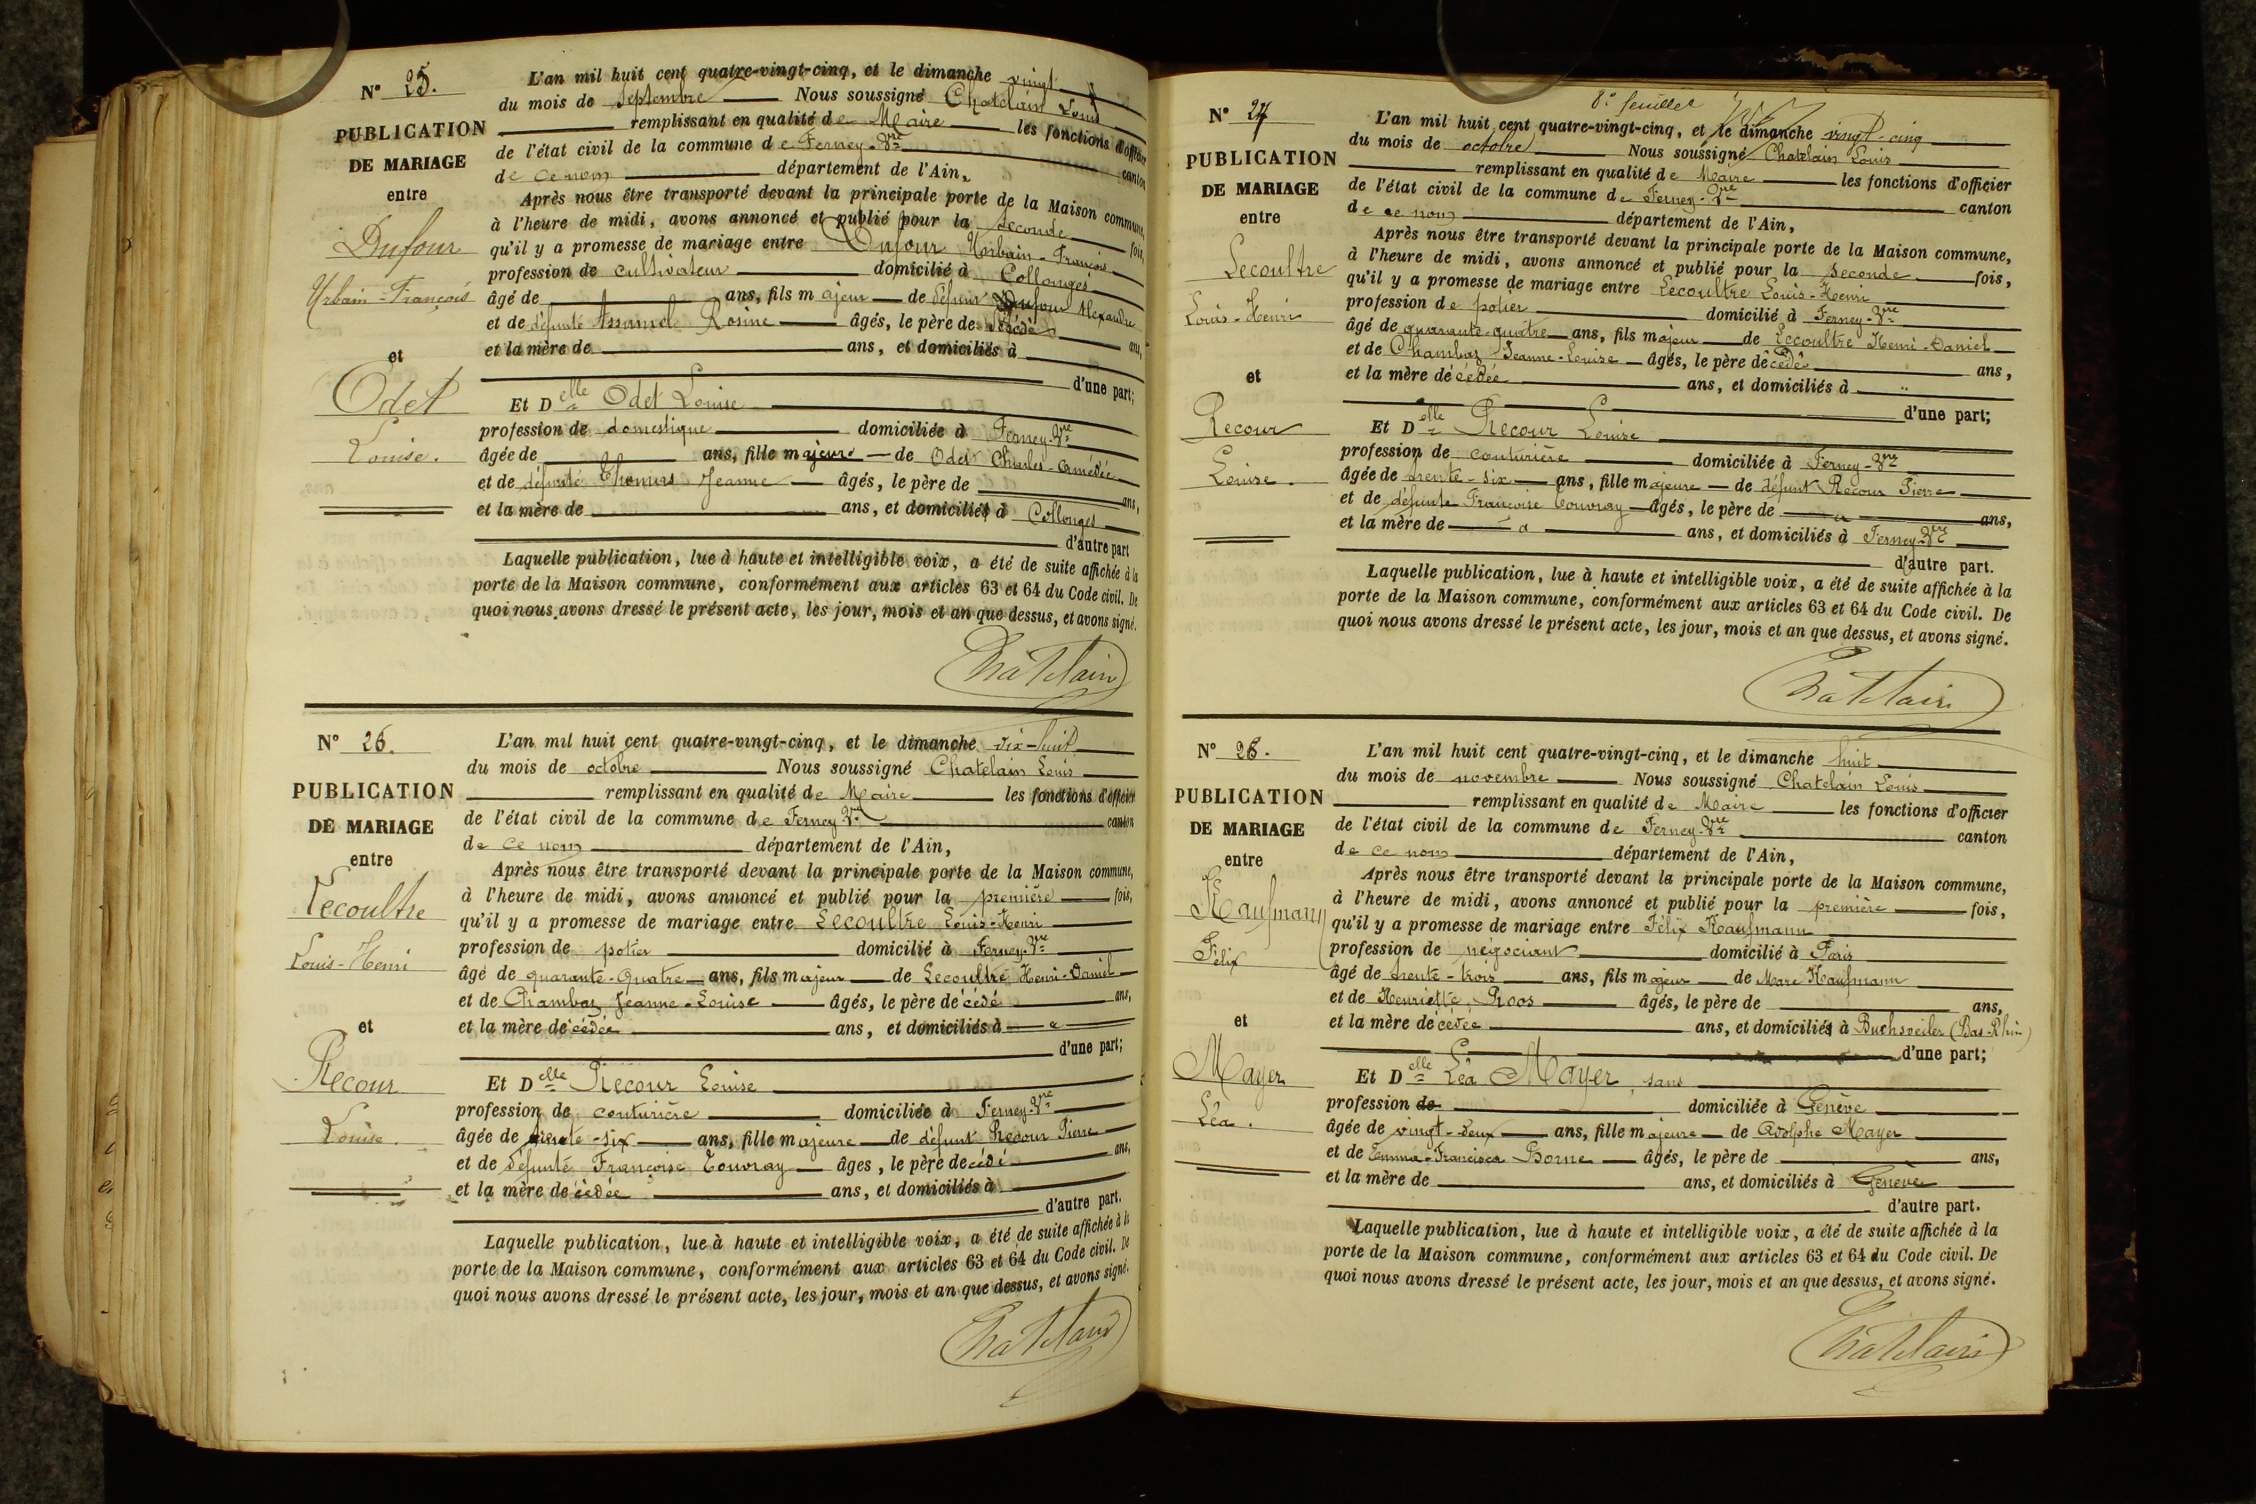 N° 25.
PUBLICATION
DE MARIAGE
entre
Dufour
Urbain-François
et
Odet
Louise.
L'an mil huit cent quatre-vingt-cinq, et le dimanche vingt
du mois de septembre Nous soussigné Chatelain Louis
remplissant en qualité de Maire les fonctions d'officier
de l'état civil de la commune de Ferney-Vre canton
de ce nom département de l'Ain,
Après nous être transporté devant la principale porte de la Maison commune,
à l'heure de midi, avons annoncé et publié pour la seconde fois,
qu'il y a promesse de mariage entre Dufour Urbain-François
profession de cultivateur domicilié à Collonges
âgé de ans, fils majeur de défunt Dufour Alexandre
et de défunte Rosine âgés, le père de décédé ans,
et la mère de ans, et domiciliés à
d'une part;
Et Delle Odet Louise
profession de domestique domiciliée à Ferney-Vre
âgée de ans, fille majeure de Odet Charles-Amédée
et de défunte Jeanne âgés, le père de ans,
et la mère de ans, et domiciliés à Collonges
d'autre part
Laquelle publication, lue à haute et intelligible voix, a été de suite affichée à la
porte de la Maison commune, conformément aux articles 63 et 64 du Code civil. De
quoi nous avons dressé le présent acte, les jour, mois et an que dessus, et avons signé.
Chatelain
N° 26.
PUBLICATION
DE MARIAGE
entre
Lecoultre
Louis-Henri
et
Recour
Louise.
L'an mil huit cent quatre-vingt-cinq, et le dimanche dix-huit
du mois de octobre Nous soussigné Chatelain Louis
remplissant en qualité de Maire les fonctions d'officier
de l'état civil de la commune de Ferney-Vre canton
de ce nom département de l'Ain,
Après nous être transporté devant la principale porte de la Maison commune,
à l'heure de midi, avons annoncé et publié pour la première fois,
qu'il y a promesse de mariage entre Lecoultre Louis-Henri
profession de potier domicilié à Ferney-Vre
âgé de quarante-quatre ans, fils majeur de Lecoultre Henri-Daniel
et de Chambaz Jeanne-Louise âgés, le père décédé ans,
et la mère décédée ans, et domiciliés à
d'une part;
Et Delle Recour Louise
profession de couturière domiciliée à Ferney-Vre
âgée de trente-six ans, fille majeure de défunt Recour Pierre
et de défunte Françoise Touvray âges, le père decédé ans,
et la mère décédée ans, et domiciliés à
d'autre part.
Laquelle publication, lue à haute et intelligible voix, a été de suite affichée à la
porte de la Maison commune, conformément aux articles 63 et 64 du Code civil. De
quoi nous avons dressé le présent acte, les jour, mois et an que dessus, et avons signé.
Chatelain
8e feuillet
N° 27
PUBLICATION
DE MARIAGE
entre
Lecoultre
Louis-Henri
et
Recour
Louise.
L'an mil huit cent quatre-vingt-cinq, et le dimanche vingt-cinq
du mois de octobre Nous soussigné Chatelain Louis
remplissant en qualité de Maire les fonctions d'officier
de l'état civil de la commune de Ferney-Vre canton
de ce nom département de l'Ain,
Après nous être transporté devant la principale porte de la Maison commune,
à l'heure de midi, avons annoncé et publié pour la seconde fois,
qu'il y a promesse de mariage entre Lecoultre Louis-Henri
profession de potier domicilié à Ferney-Vre
âgé de quarante-quatre ans, fils majeur de Lecoultre Henri-Daniel
et de Chambaz Jeanne-Louise âgés, le père décédé ans,
et la mère décédée ans, et domiciliés à "
d'une part;
Et Delle Recour Louise
profession de couturière domiciliée à Ferney-Vre
âgée de trente-six ans, fille majeure de défunt Recour Pierre
et de défunte Françoise Touvray âgés, le père de ans,
et la mère de ans, et domiciliés à Ferney-Vre
d'autre part.
Laquelle publication, lue à haute et intelligible voix, a été de suite affichée à la
porte de la Maison commune, conformément aux articles 63 et 64 du Code civil. De
quoi nous avons dressé le présent acte, les jour, mois et an que dessus, et avons signé.
Chatelain
N° 28.
PUBLICATION
DE MARIAGE
entre
Kaufmann
Félix
et
Mayer
Léa.
L'an mil huit cent quatre-vingt-cinq, et le dimanche huit
du mois de novembre Nous soussigné Chatelain Louis
remplissant en qualité de Maire les fonctions d'officier
de l'état civil de la commune de Ferney-Vre canton
de ce nom département de l'Ain,
Après nous être transporté devant la principale porte de la Maison commune,
à l'heure de midi, avons annoncé et publié pour la première fois,
qu'il y a promesse de mariage entre Félix Kaufmann
profession de négociant domicilié à Paris
âgé de trente-trois ans, fils majeur de Marc Kaufmann
et de Henriette Roos âgés, le père de ans,
et la mère décédée ans, et domiciliés à Buchsveiler (Bas-Rhin)
d'une part;
Et Delle Léa Mayer, sans
profession de domiciliée à Genève
âgée de vingt-deux ans, fille majeure de Adolphe Mayer
et de Emma-Francisca Borne âgés, le père de ans,
et la mère de ans, et domiciliés à Genève
d'autre part.
Laquelle publication, lue à haute et intelligible voix, a été de suite affichée à la
porte de la Maison commune, conformément aux articles 63 et 64 du Code civil. De
quoi nous avons dressé le présent acte, les jour, mois et an que dessus, et avons signé.
Chatelain